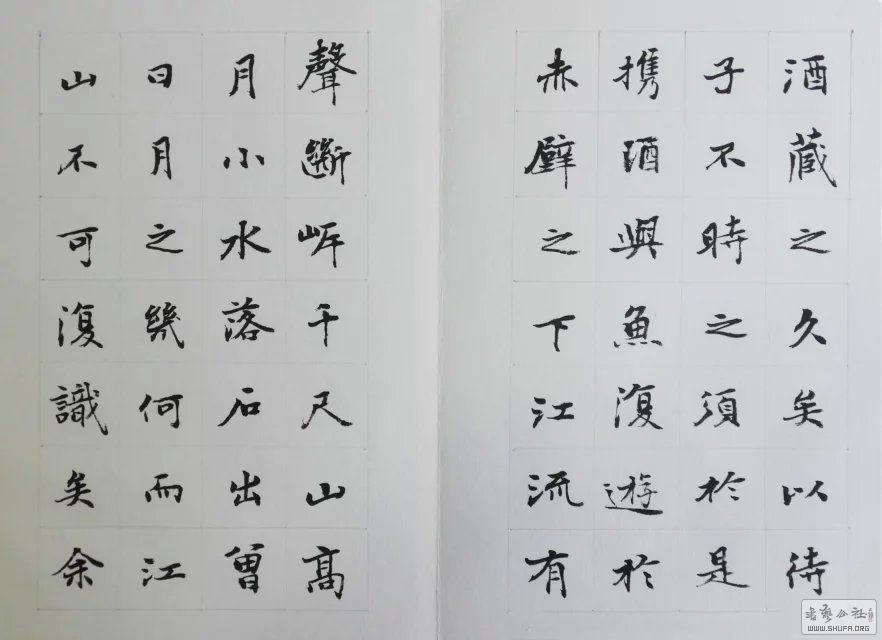 酒藏之久矣以待
子不時之須於是
携酒與魚復遊於
赤壁之下江流有
聲斷岸千尺山高
月小水落石出曾
日月之幾何而江
山不可復識矣余
WWW.SHUFA.ORG